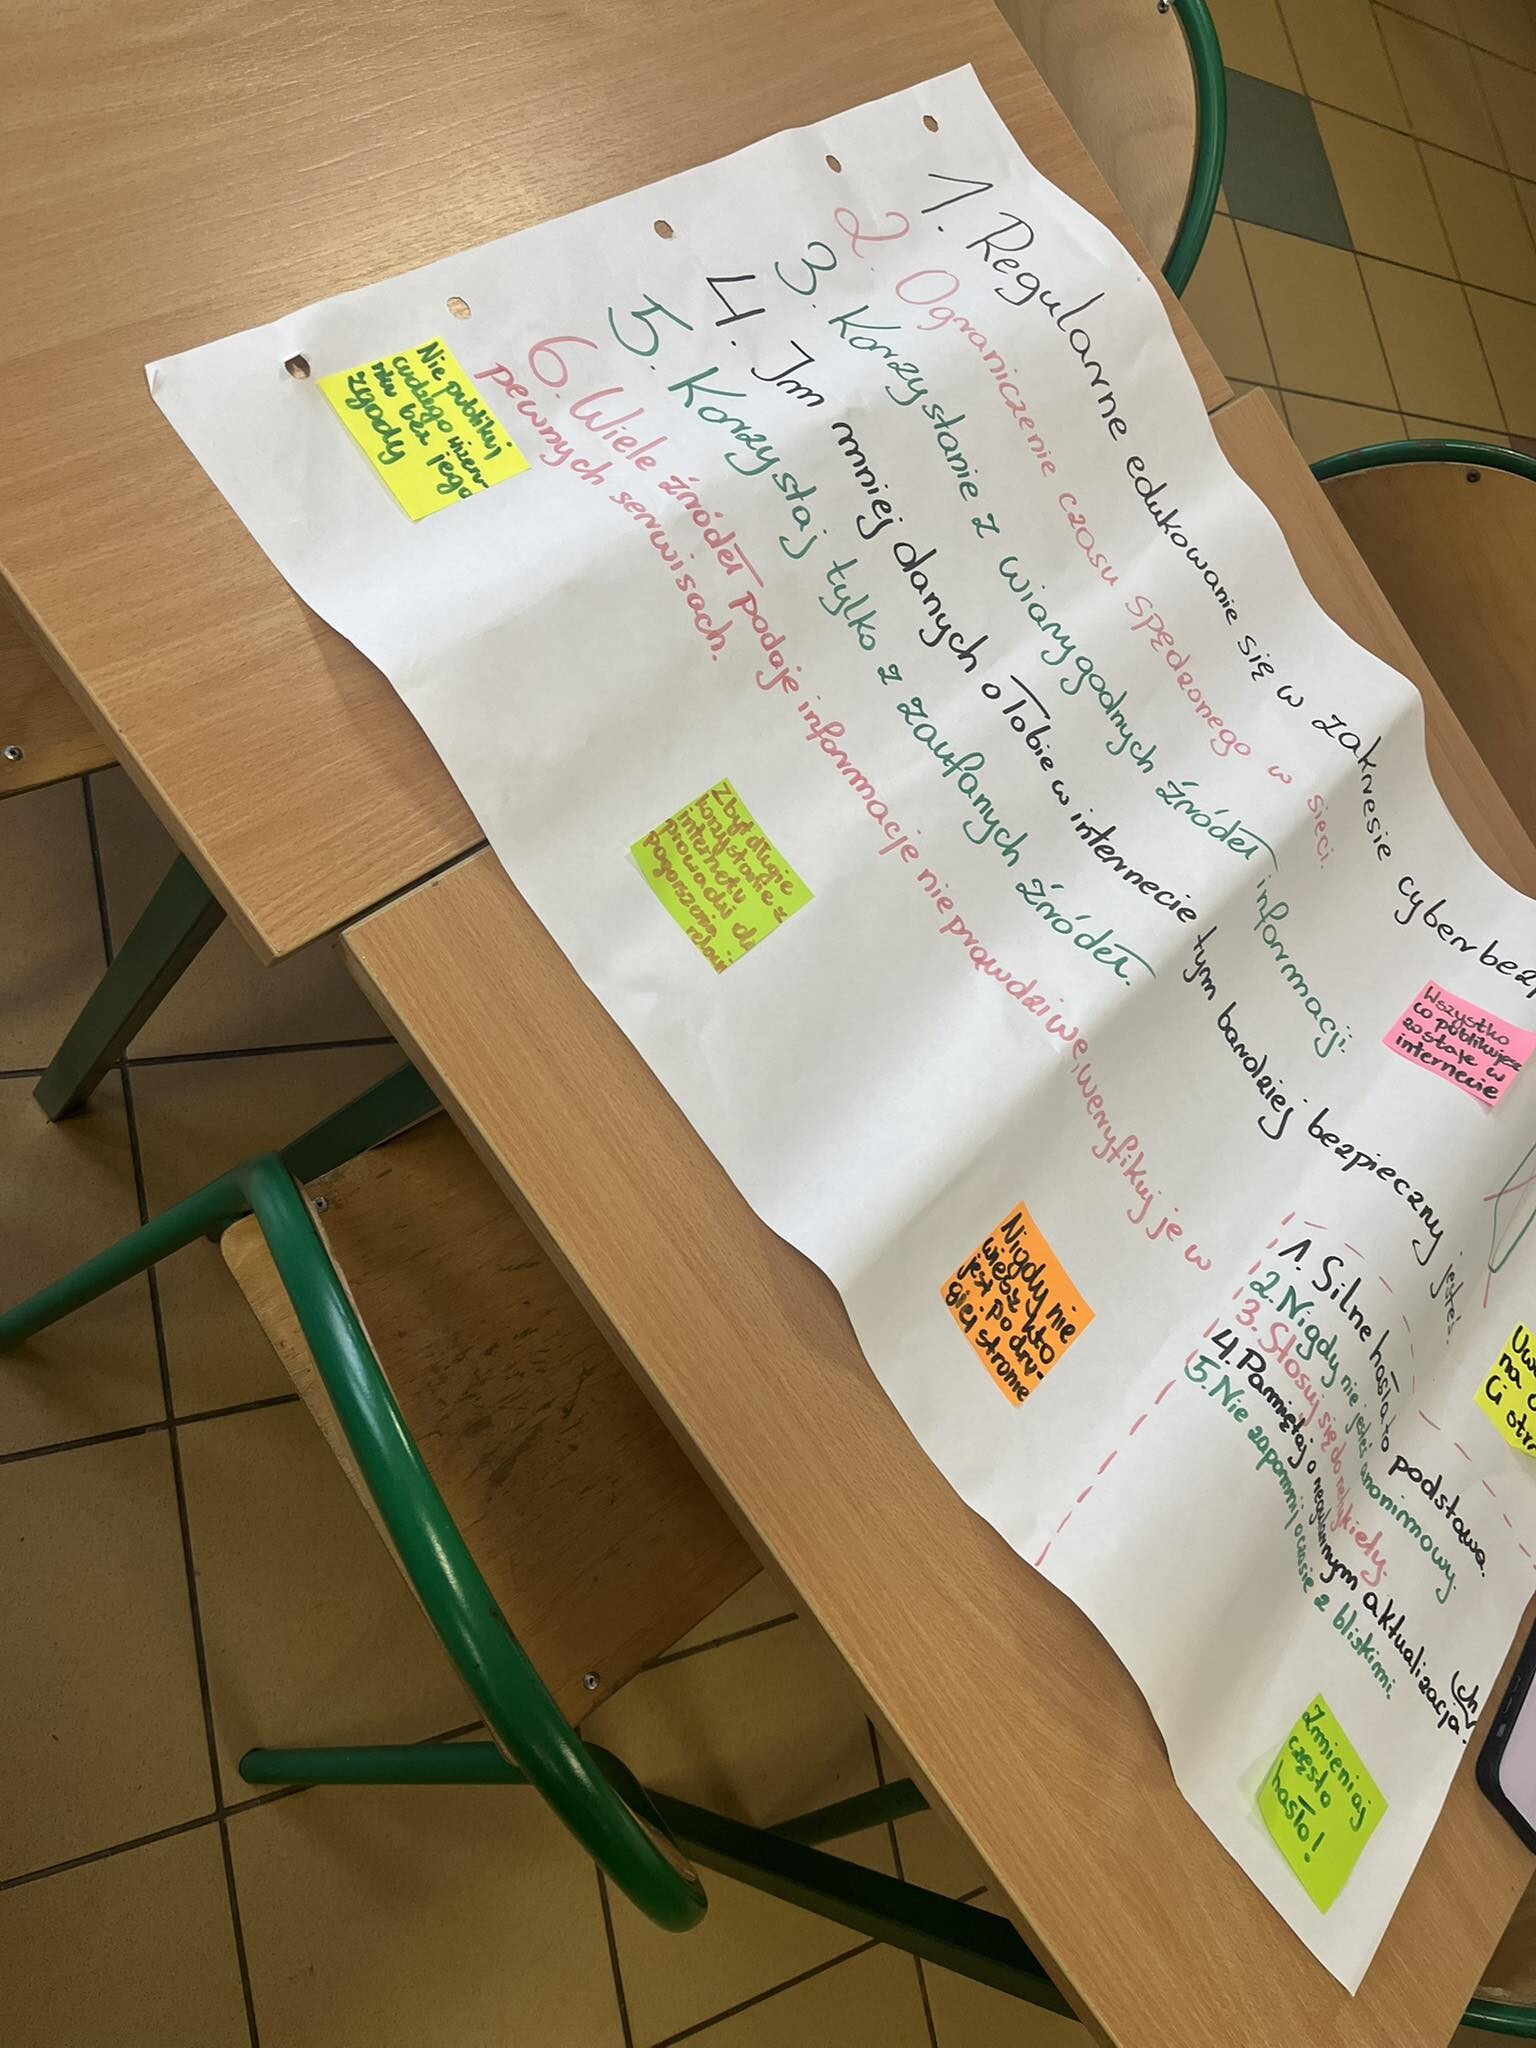 1. Regularne edukowanie się w zakresie
2. Ograniczenie czasu spędzonego w sieci.
3. Korzystanie z wiarygodnych źródeł informacji.
4. Im mniej danych o Tobie w internecie tym bardziej bezpieczny jesteś.
5. Korzystaj tylko z zaufanych źródeł.
6. Wiele źródeł podaje informacje nieprawdziwe, weryfikuj je w
pewnych serwisach.
Nie publikuj
cudzego
bez jego
zgody
Zbyt długie
korzystanie z
internetu
prowadzi do
pogorszenia
relacji
Wszystko
co publikujesz
zostaje w
internecie
Nigdy nie
wiesz kto
jest po dru-
giej stronie
1. Silne hasła to podstawa.
2. Nigdy nie jesteś anonimowy.
3. Stosuj się do
4. Pamiętaj o regularnym aktualizacja.
ch
5. Nie zapomnij o czasie z bliskimi.
na
Ci
Zmieniaj
często
hasło!